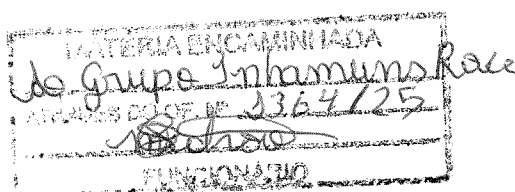 MATÉRIA ENCAMINHADA
Ao Grupo Inhamuns Race
ATRAVÉS DO OF. Nº 1364/25
FUNCIONÁRIO